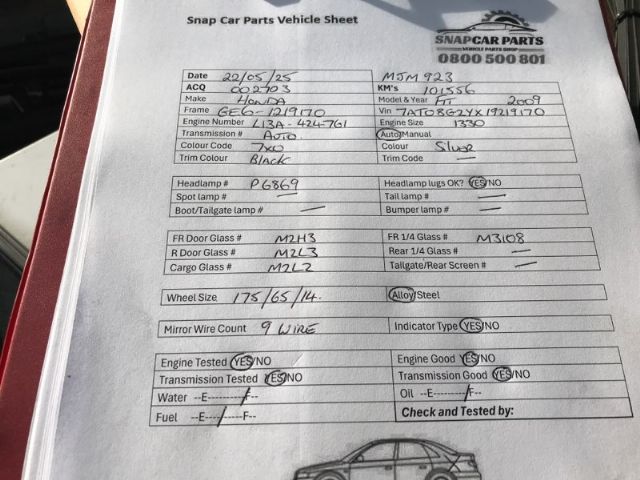 Snap Car Parts Vehicle Sheet
SNAPCAR PARTS
VEHICLE PARTS SHOP
0800 500 801
Date 22/05/25 MJM 923
ACQ 002703 KM's 101556
Make HONDA Model & Year FIT 2009
Frame GE6-1219170 Vin 7AT08G2YX19219170
Engine Number L13A-4247G1 Engine Size 1330
Transmission # AUTO. Auto/Manual
Colour Code 7x0 Colour Silver
Trim Colour BLACK Trim Code —
Headlamp # P6869 Headlamp lugs OK? YES/NO
Spot lamp # — Tail lamp # —
Boot/Tailgate lamp # — Bumper lamp # —
FR Door Glass # M2H3 FR 1/4 Glass # M3108
R Door Glass # M2L3 Rear 1/4 Glass # —
Cargo Glass # M2L2 Tailgate/Rear Screen # —
Wheel Size 175/65/14. Alloy/Steel
Mirror Wire Count 9 WIRE Indicator Type YES/NO
Engine Tested YES/NO Engine Good YES/NO
Transmission Tested YES/NO Transmission Good YES/NO
Water --E----------/F-- Oil --E----------/F--
Fuel --E----/------F-- Check and Tested by: